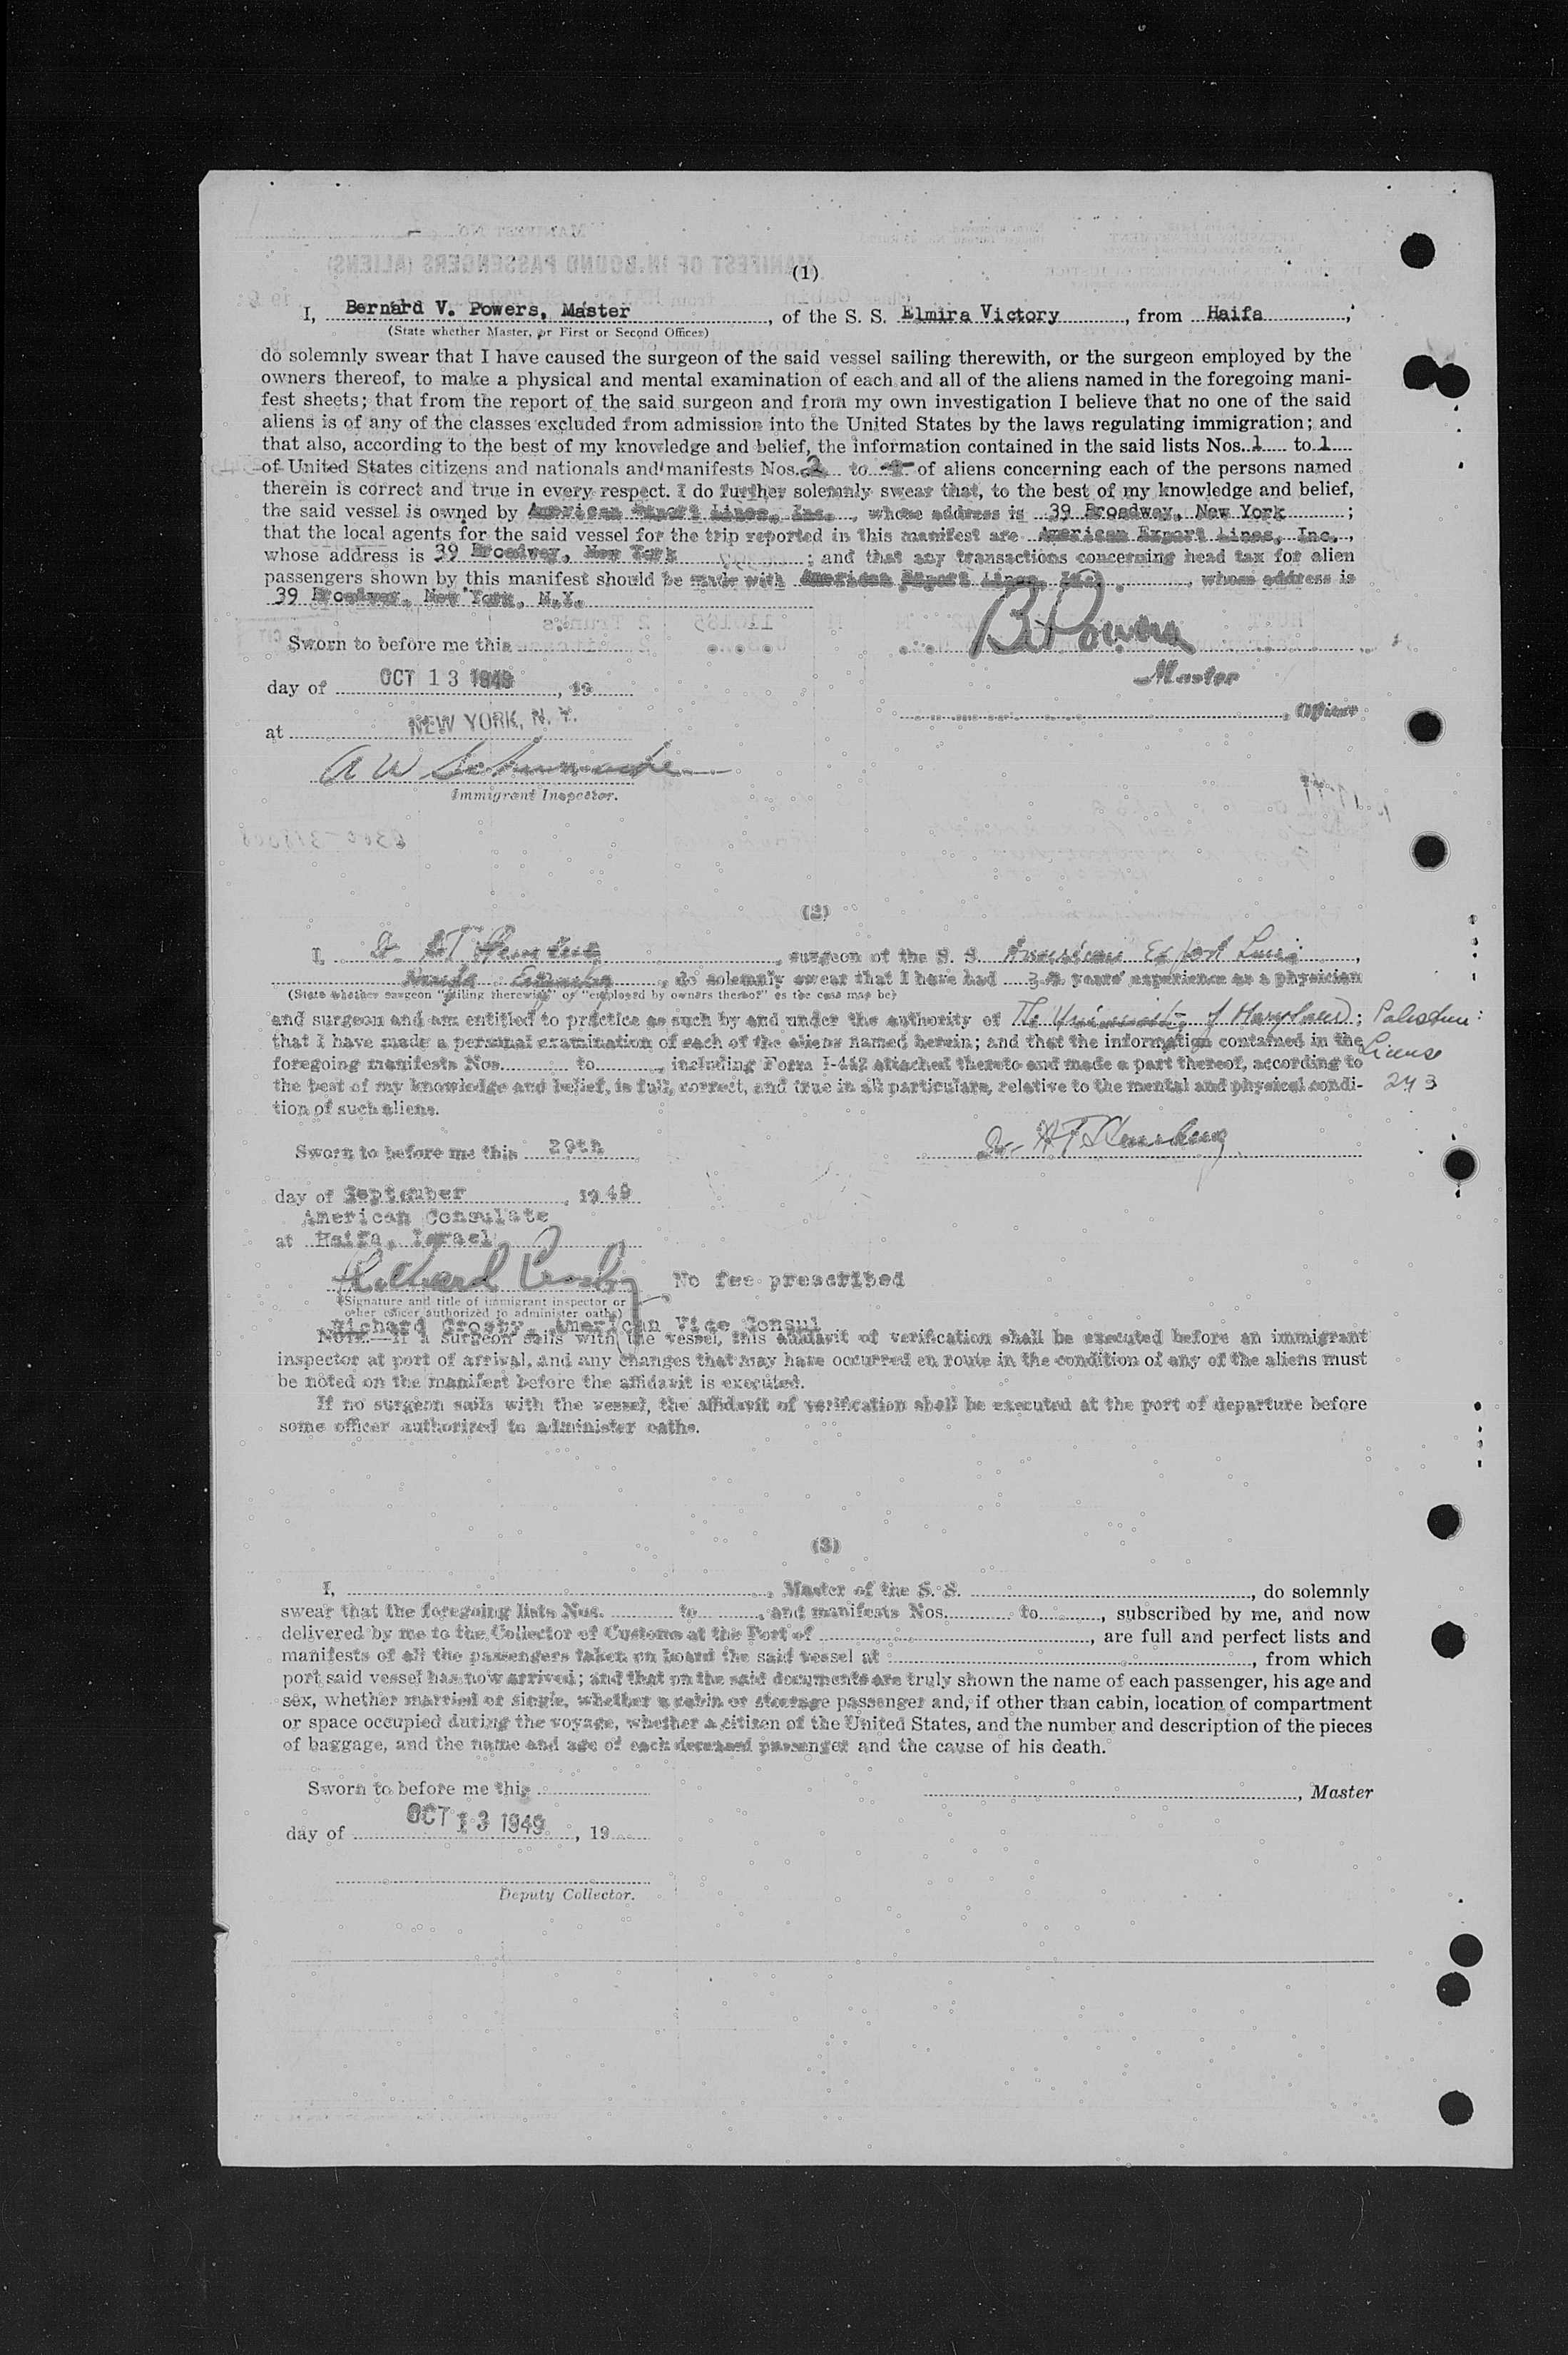 (1)
I, Bernard V. Powers, Master, of the S. S. Elmira Victory, from Haifa,
(State whether Master, or First or Second Officer)
do solemnly swear that I have caused the surgeon of the said vessel sailing therewith, or the surgeon employed by the
owners thereof, to make a physical and mental examination of each and all of the aliens named in the foregoing mani-
fest sheets; that from the report of the said surgeon and from my own investigation I believe that no one of the said
aliens is of any of the classes excluded from admission into the United States by the laws regulating immigration; and
that also, according to the best of my knowledge and belief, the information contained in the said lists Nos. 1 to 1
of United States citizens and nationals and manifests Nos. 2 to of aliens concerning each of the persons named
therein is correct and true in every respect. I do further solemnly swear that, to the best of my knowledge and belief,
the said vessel is owned by American Export Lines, Inc., whose address is 39 Broadway, New York ;
that the local agents for the said vessel for the trip reported in this manifest are American Export Lines, Inc.,
whose address is 39 Broadway, New York ; and that any transactions concerning head tax for alien
passengers shown by this manifest should be made with American Export Lines, Inc. , whose address is
39 Broadway, New York, N.Y.
Sworn to before me this
B V Powers
day of OCT 13 1949, 19
Master
, Officer
at NEW YORK, N. Y.
A W Schumacher
Immigrant Inspector.
(2)
I, Dr. , surgeon of the S. S. American Export Lines,
, do solemnly swear that I have had years' experience as a physician
(State whether surgeon "sailing therewith" or "employed by owners thereof" as the case may be)
and surgeon and am entitled to practice as such by and under the authority of The University of Maryland; Palestine:
that I have made a personal examination of each of the aliens named herein; and that the information contained in the License
foregoing manifests Nos. to , including Form I-442 attached thereto and made a part thereof, according to
the best of my knowledge and belief, is full, correct, and true in all particulars, relative to the mental and physical condi- 243
tion of such aliens.
Sworn to before me this 29th
Dr.
day of September, 1949
American Consulate
at Haifa, Israel
Richard Crosby No fee prescribed
(Signature and title of immigrant inspector or
other officer authorized to administer oaths)
Richard Crosby, American Vice Consul
NOTE.—If a surgeon sails with the vessel, this affidavit of verification shall be executed before an immigrant
inspector at port of arrival, and any changes that may have occurred en route in the condition of any of the aliens must
be noted on the manifest before the affidavit is executed.
If no surgeon sails with the vessel, the affidavit of verification shall be executed at the port of departure before
some officer authorized to administer oaths.
(3)
I, , Master of the S. S. , do solemnly
swear that the foregoing lists Nos. to , and manifests Nos. to , subscribed by me, and now
delivered by me to the Collector of Customs at the Port of , are full and perfect lists and
manifests of all the passengers taken on board the said vessel at , from which
port said vessel has now arrived; and that on the said documents are truly shown the name of each passenger, his age and
sex, whether married or single, whether a cabin or steerage passenger and, if other than cabin, location of compartment
or space occupied during the voyage, whether a citizen of the United States, and the number and description of the pieces
of baggage, and the name and age of each deceased passenger and the cause of his death.
Sworn to before me this
, Master
day of OCT 13 1949, 19
Deputy Collector.